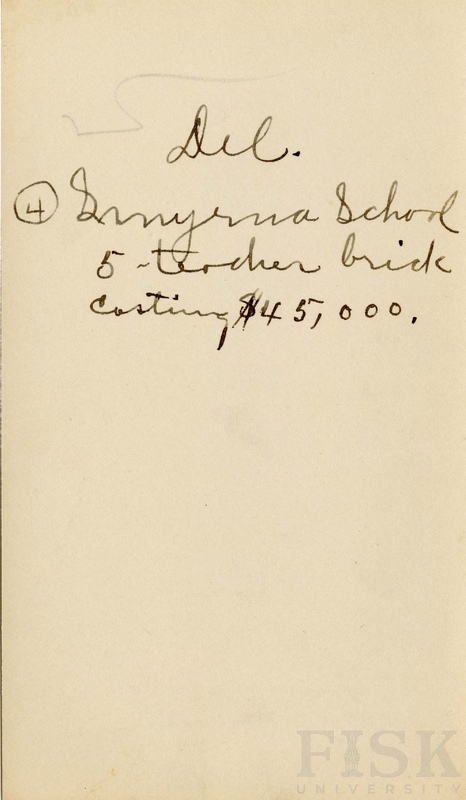 Del.
④ Smyrna School
5-teacher brick
costing $45,000.
FISK
UNIVERSITY